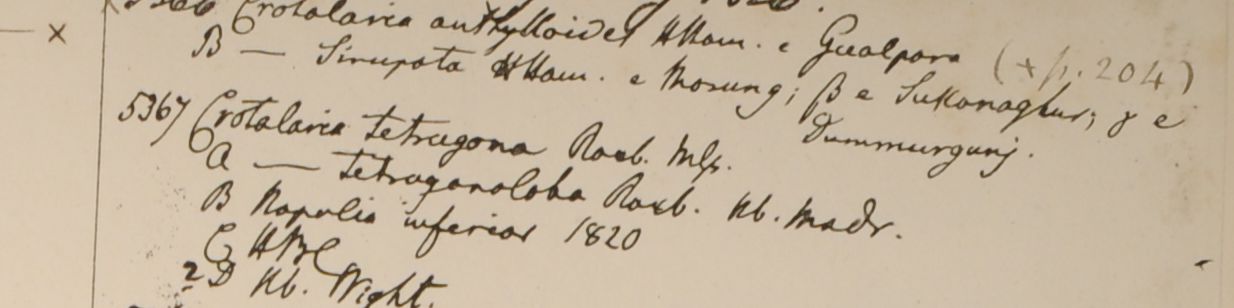 5366 Crotalaria anthylloides HHam. e Gualpara (+ p. 204)
B — Sirupata HHam. e Morung; β e Sukanaghur; γ e Dummurgunj.
5367 Crotalaria tetragona Roxb. Mss.
A — tetragonoloba Roxb. Hb. Madr.
B Napalia inferior 1820
C HBC
2 D Hb. Wight.